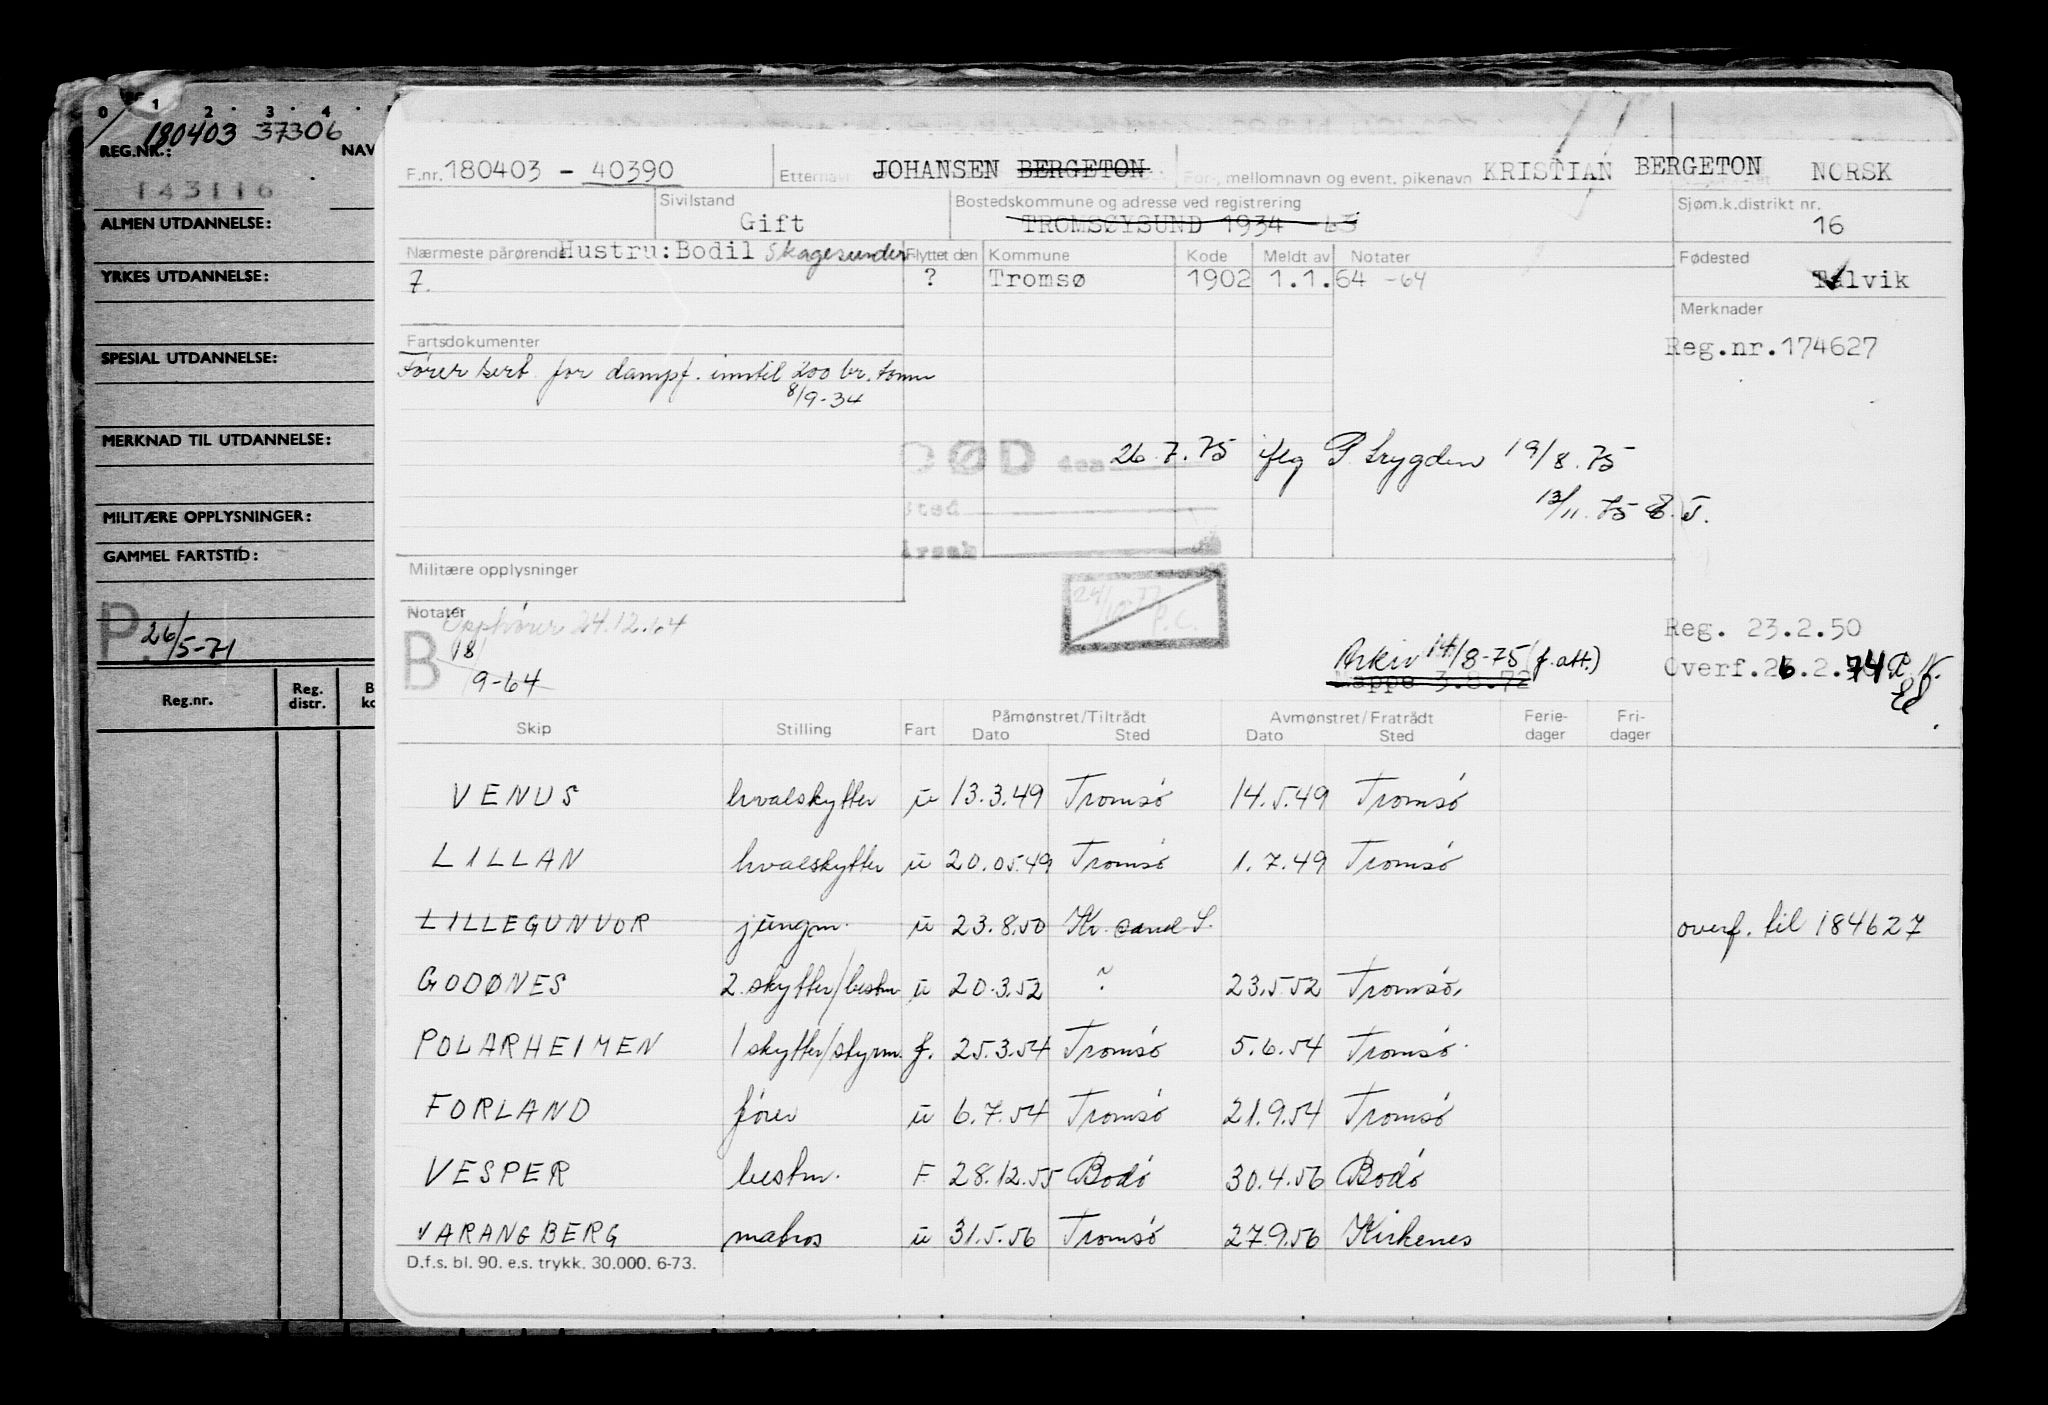 0 1 2 3 4
180403 37306
REG.NR.: NAV
143116
ALMEN UTDANNELSE:
YRKES UTDANNELSE:
SPESIAL UTDANNELSE:
MERKNAD TIL UTDANNELSE:
MILITÆRE OPPLYSNINGER:
GAMMEL FARTSTID:
P. 26/5-71
Reg.nr. Reg. distr. B ko
F.nr. 180403 - 40390 Etternavn JOHANSEN BERGETON For-, mellomnavn og event. pikenavn KRISTIAN BERGETON NORSK
Sivilstand Gift
Bostedskommune og adresse ved registrering
TROMSØYSUND 1934 -63
Sjøm.k.distrikt nr.
16
Nærmeste pårørende Hustru: Bodil Skagesunder
7.
Flyttet den Kommune Kode Meldt av Notater
? Tromsø 1902 1.1.64 -64
Fødested
Talvik
Merknader
Reg.nr.174627
Fartsdokumenter
Fører sert. for dampf. inntil 200 br. tonn
8/9-34
DØD den 26.7.75 iflg P. Trygden 19/8.75
sted 13/11.75 E.T.
Årsak
Militære opplysninger
Notater Opphører 24.12.64
B 18/9-64
Arkiv 14/8-75 (f.att.)
Mappe 3.8.72
Reg. 23.2.50
Overf.26.2.74 P.K.
Skip Stilling Fart Påmønstret/Tiltrådt Avmønstret/Fratrådt Ferie- Fri-
Dato Sted Dato Sted dager dager
VENUS hvalskytter u 13.3.49 Tromsø 14.5.49 Tromsø
LILLAN hvalskytter u 20.05.49 Tromsø 1.7.49 Tromsø
LILLEGUNVOR jungm. u 23.8.50 Kr.sand S. overf. til 184627
GODØNES 2.skytter/bestm. u 20.3.52 ? 23.5.52 Tromsø.
POLARHEIMEN 1 skytter/styrm. f. 25.3.54 Tromsø 5.6.54 Tromsø
FORLAND fører u 6.7.54 Tromsø 21.9.54 Tromsø
VESPER bestm. F 28.12.55 Bodø 30.4.56 Bodø
VARANGBERG matros u 31.5.56 Tromsø 27.9.56 Kirkenes
D.f.s. bl. 90. e.s. trykk. 30.000. 6-73.